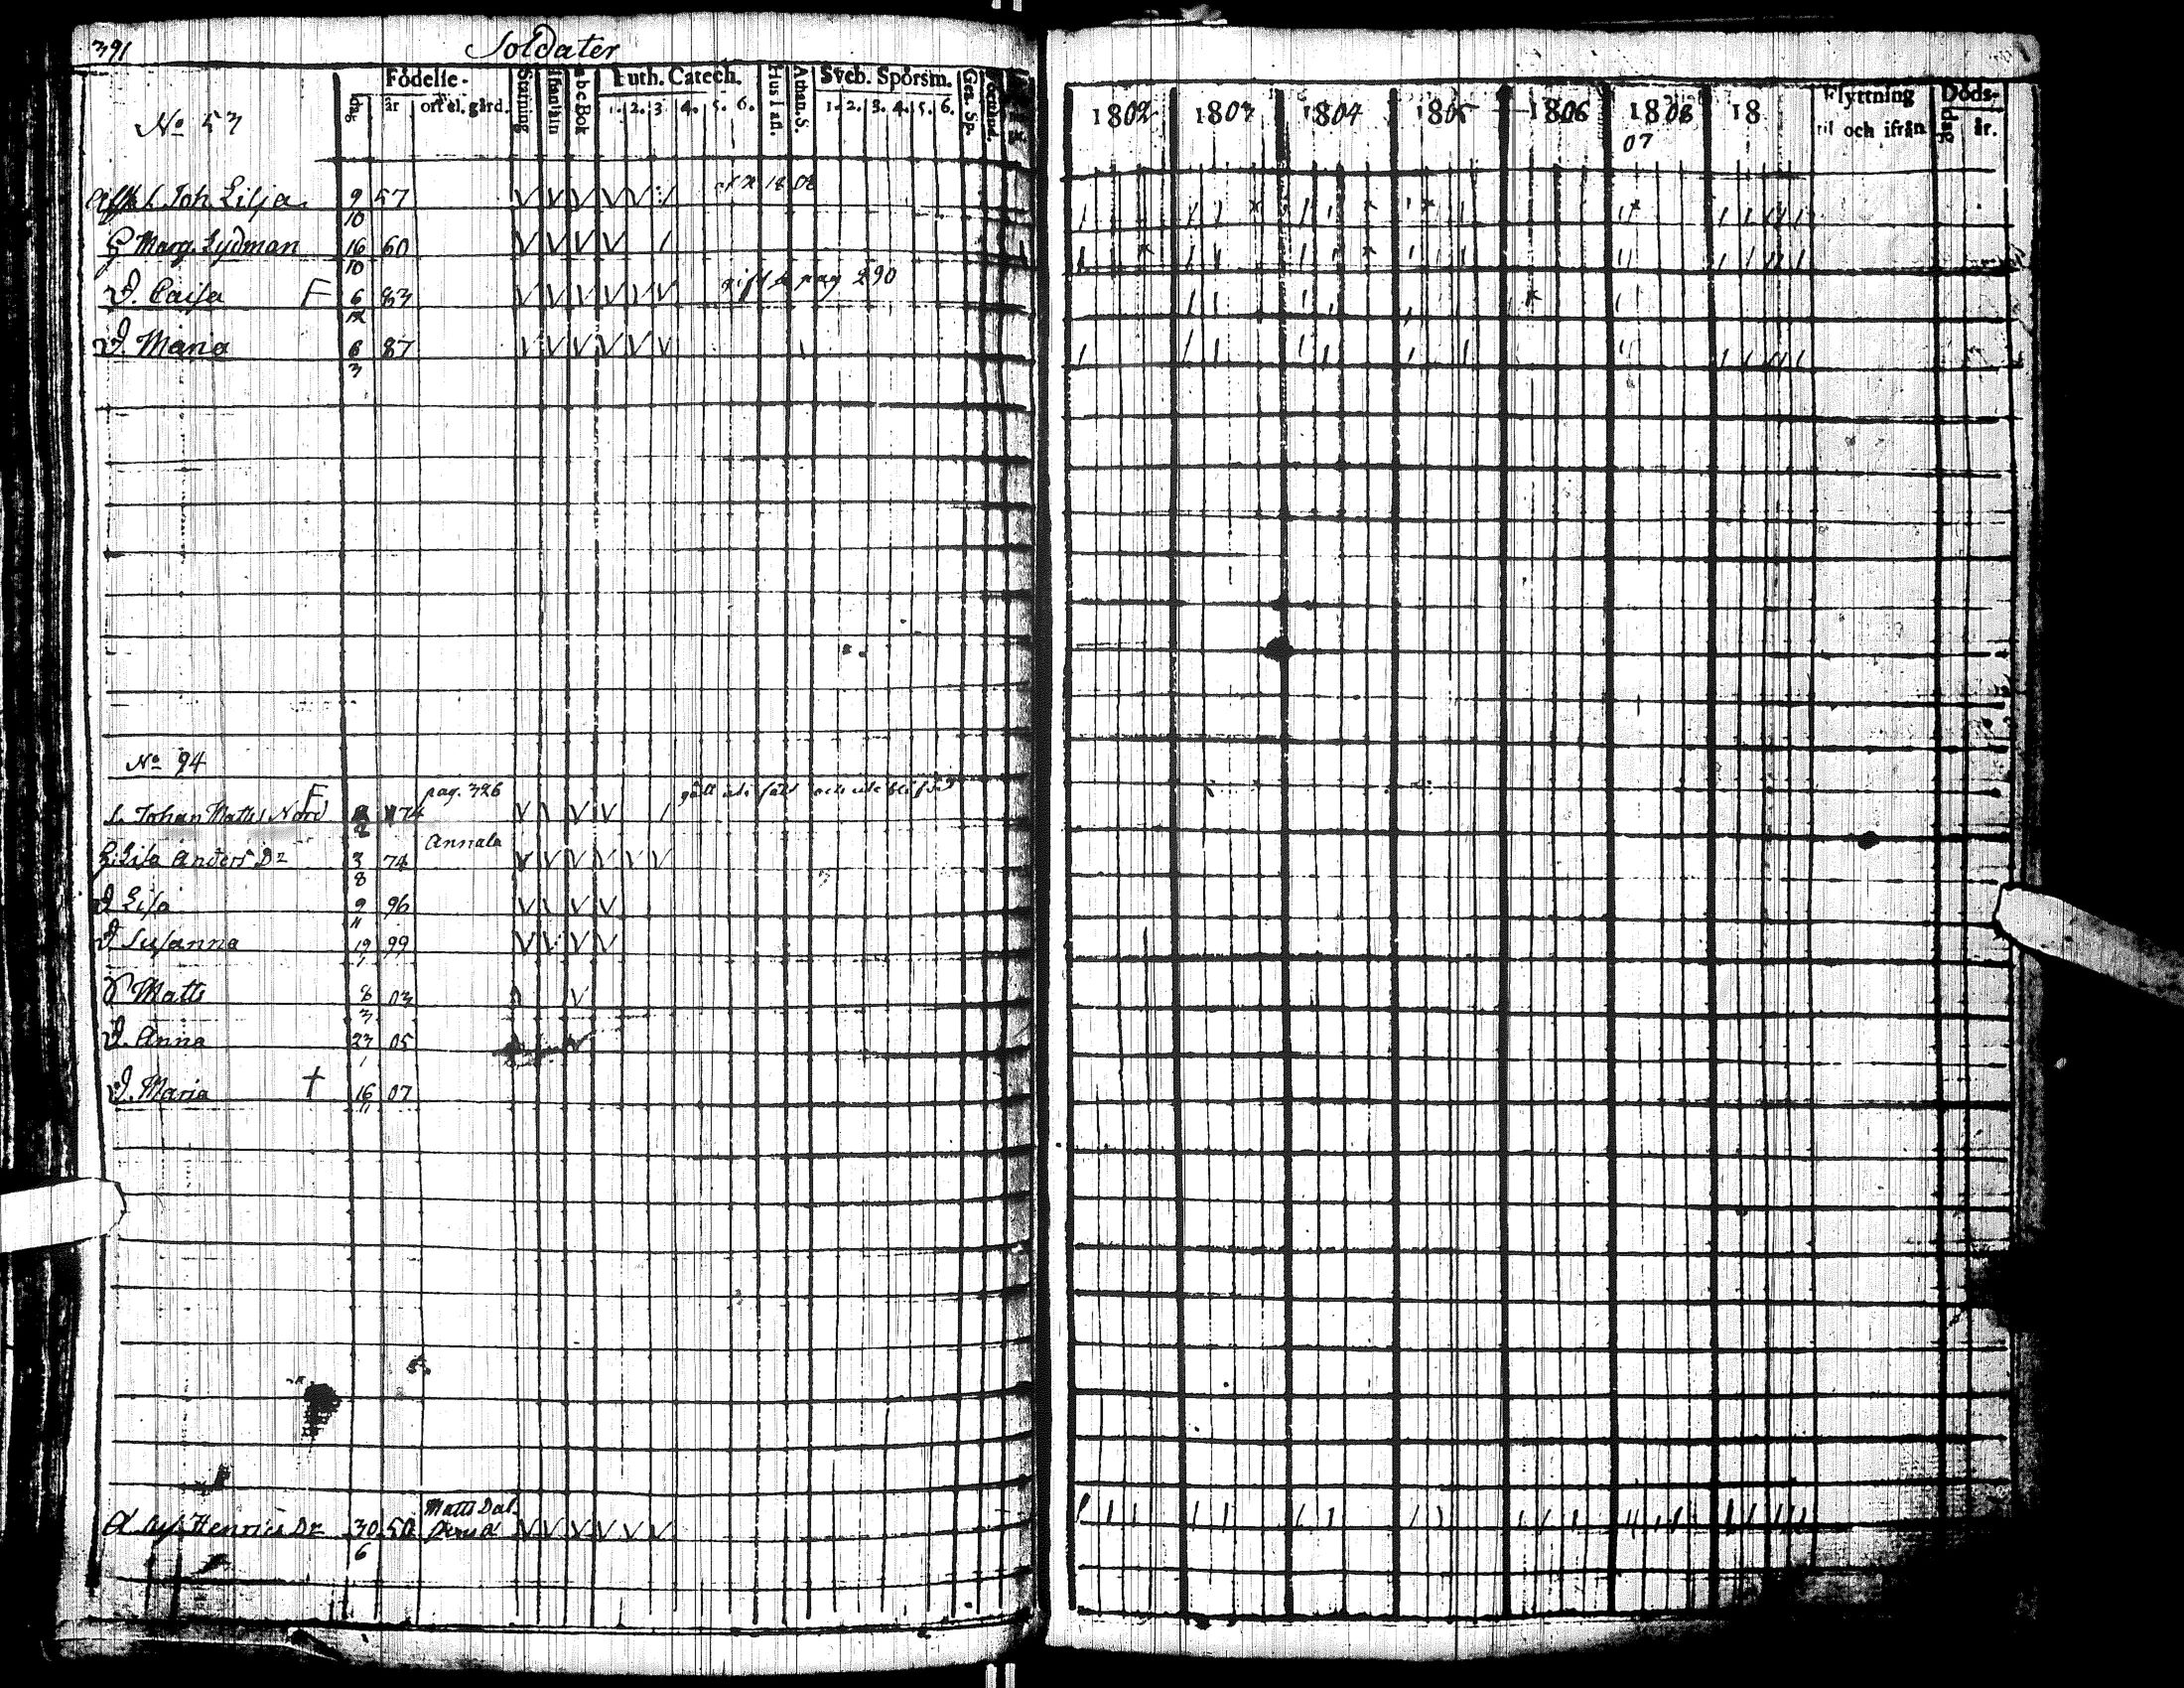 391 Soldater
Födelse- Stafning Innanläsn abcBok Luth. Catech. Hust afl. Athan. S. Sveb. Spörsm. Gen. Sp. Förstånd.
dag år ort el. gård. 1. 2. 3 4. 5. 6. 1. 2. 3. 4. 5. 6.
1802 1803 1804 1805 1806 1808 18 Flyttning Döds-
07 til och ifrån dag år.
No 53
Afsk. S. Joh. Lilja 9 57
10
H Marg. Lydman 16 60
10
D. Caisa F 6 83 gift pag 290
12
D. Maria 6 87
3
No 94
pag. 326
S. Johan Matts Nord F 74 gått uti fält och uteblifvit
8
Annala
H. Lisa Anders Dr 3 74
8
D Lisa 9 96
11
D Susanna 19 99
1
S Matts 8 03
3
D. Anna 23 05
1
D. Maria † 16 07
11
Matts Dal
Henrics Dr 30 50
6